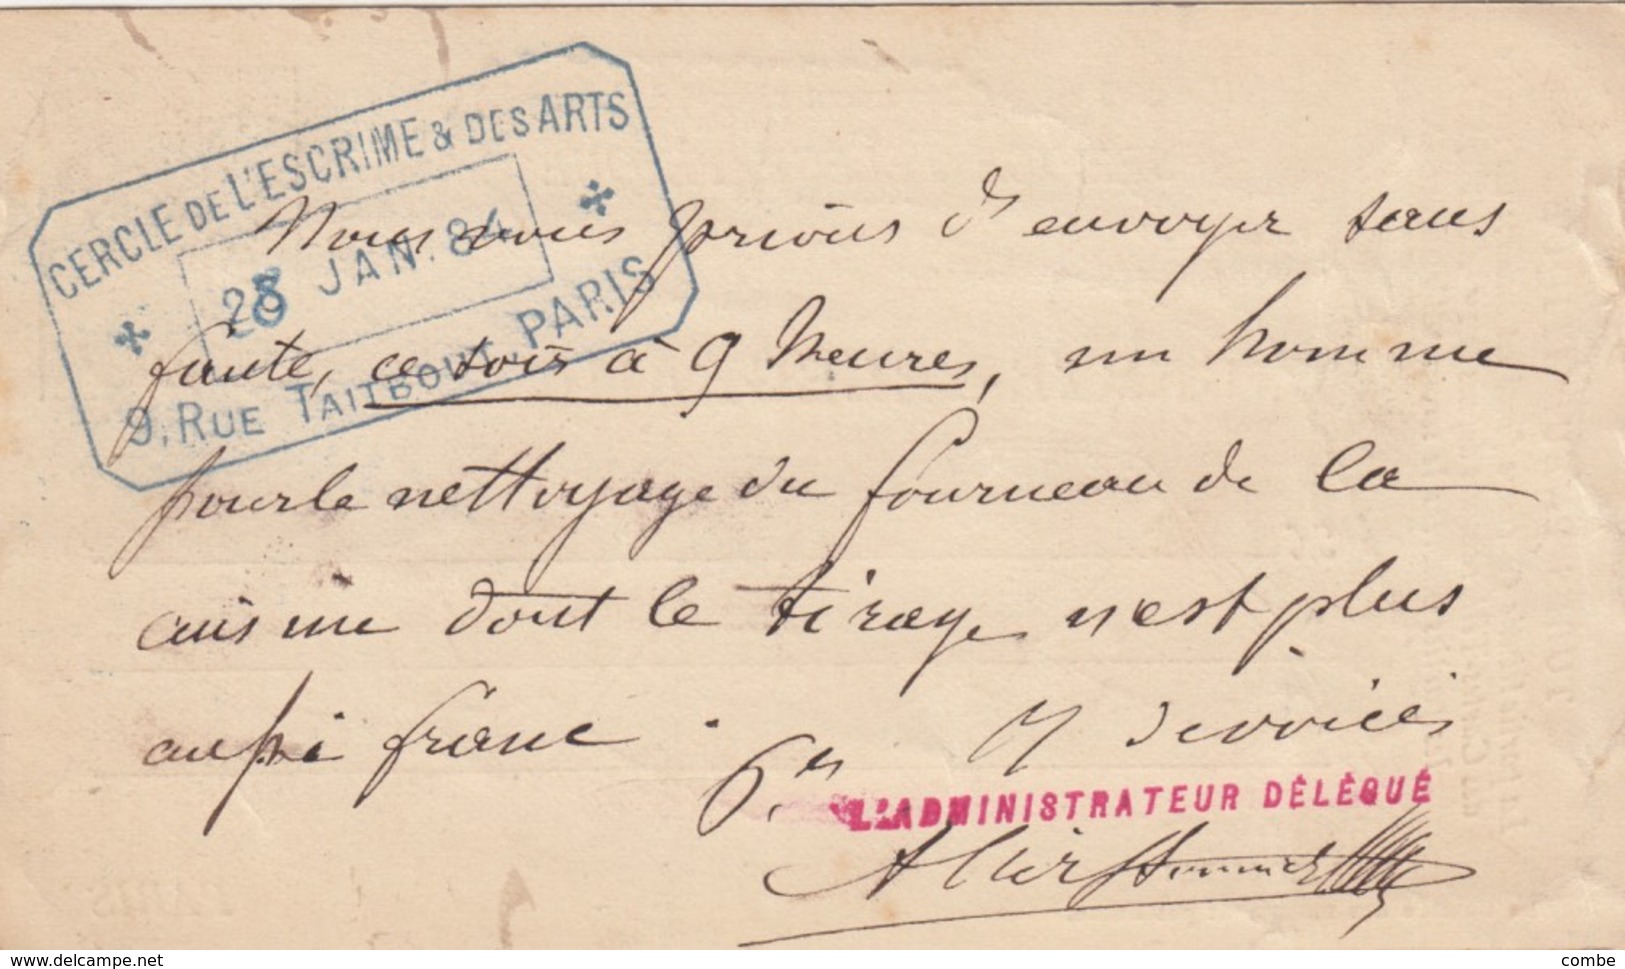 CERCLE DE L'ESCRIME & DES ARTS
28 JAN. 84
9, RUE TAITBOUT PARIS
Nous vous prions d'envoyer sans
faute, ce soir à 9 heures, un homme
pour le nettoyage du fourneau de la
cuisine dont le tirage n'est plus
aussi franc.
services
L'ADMINISTRATEUR DÉLÉGUÉ
www.delcampe.net
combe